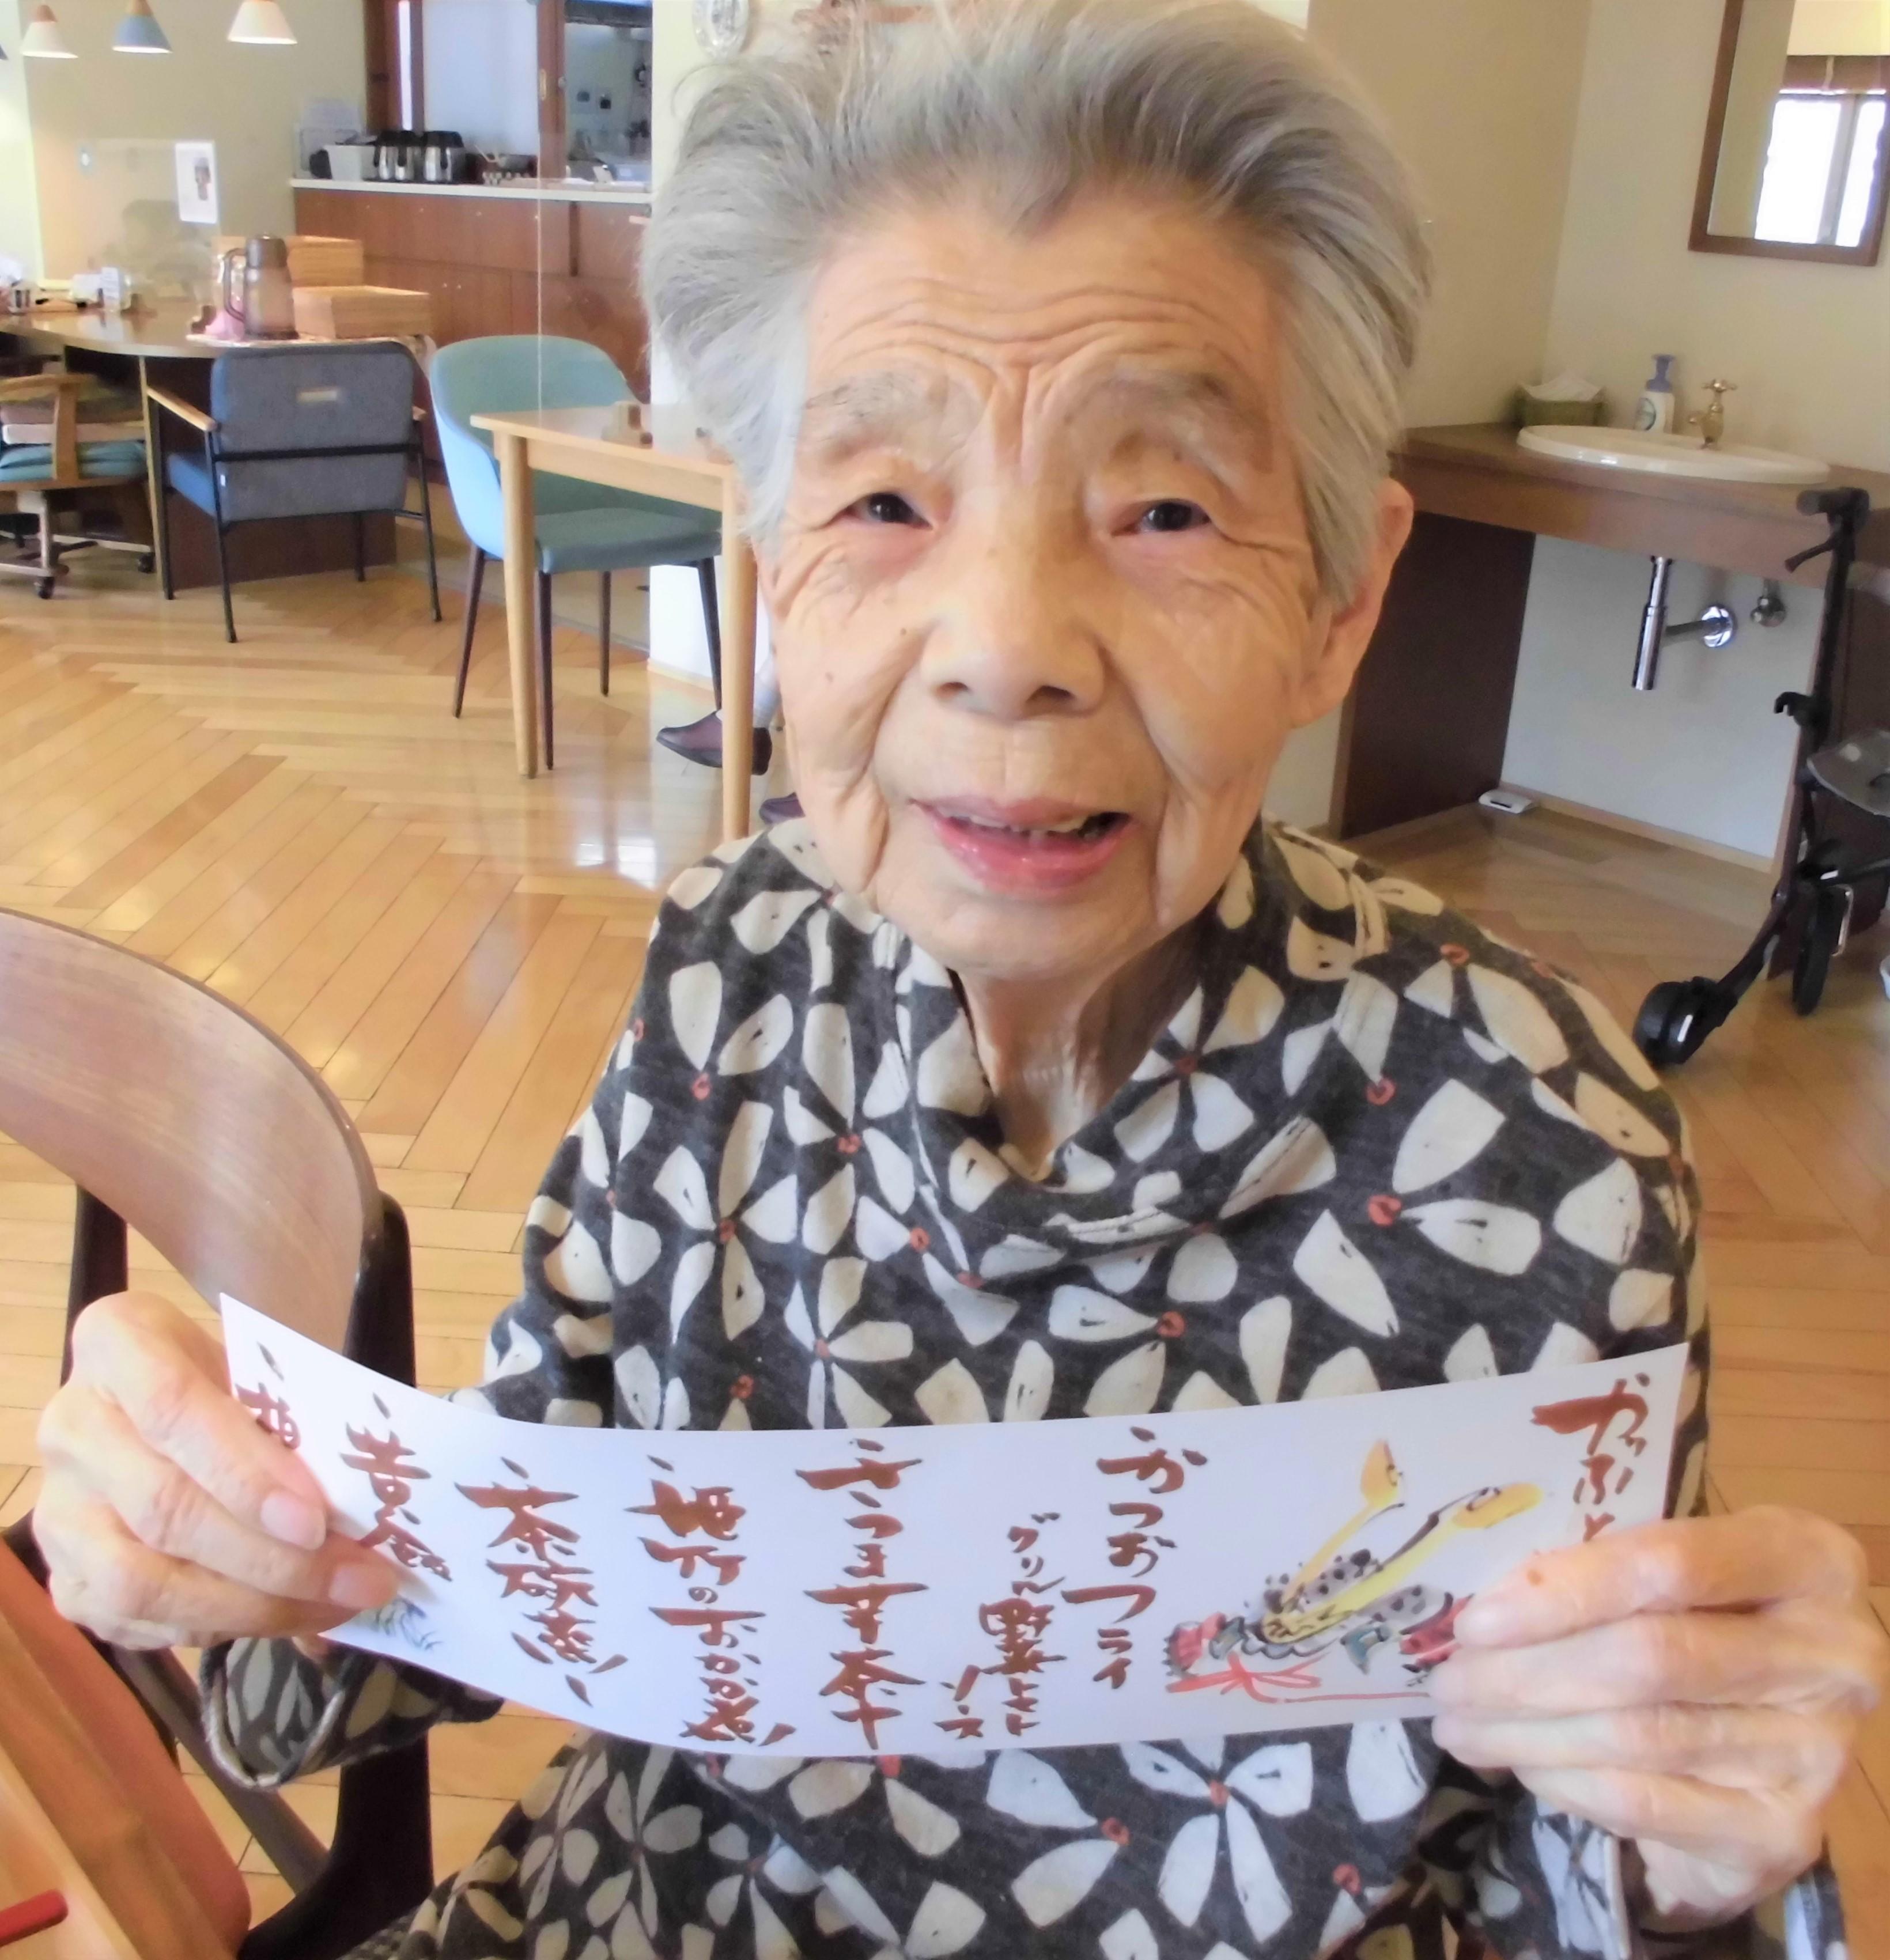 かぶと
かつおフライ
グリル野菜とトマト
ソース
さつま芋茶巾
姫竹のおかか煮
茶碗蒸し
昔